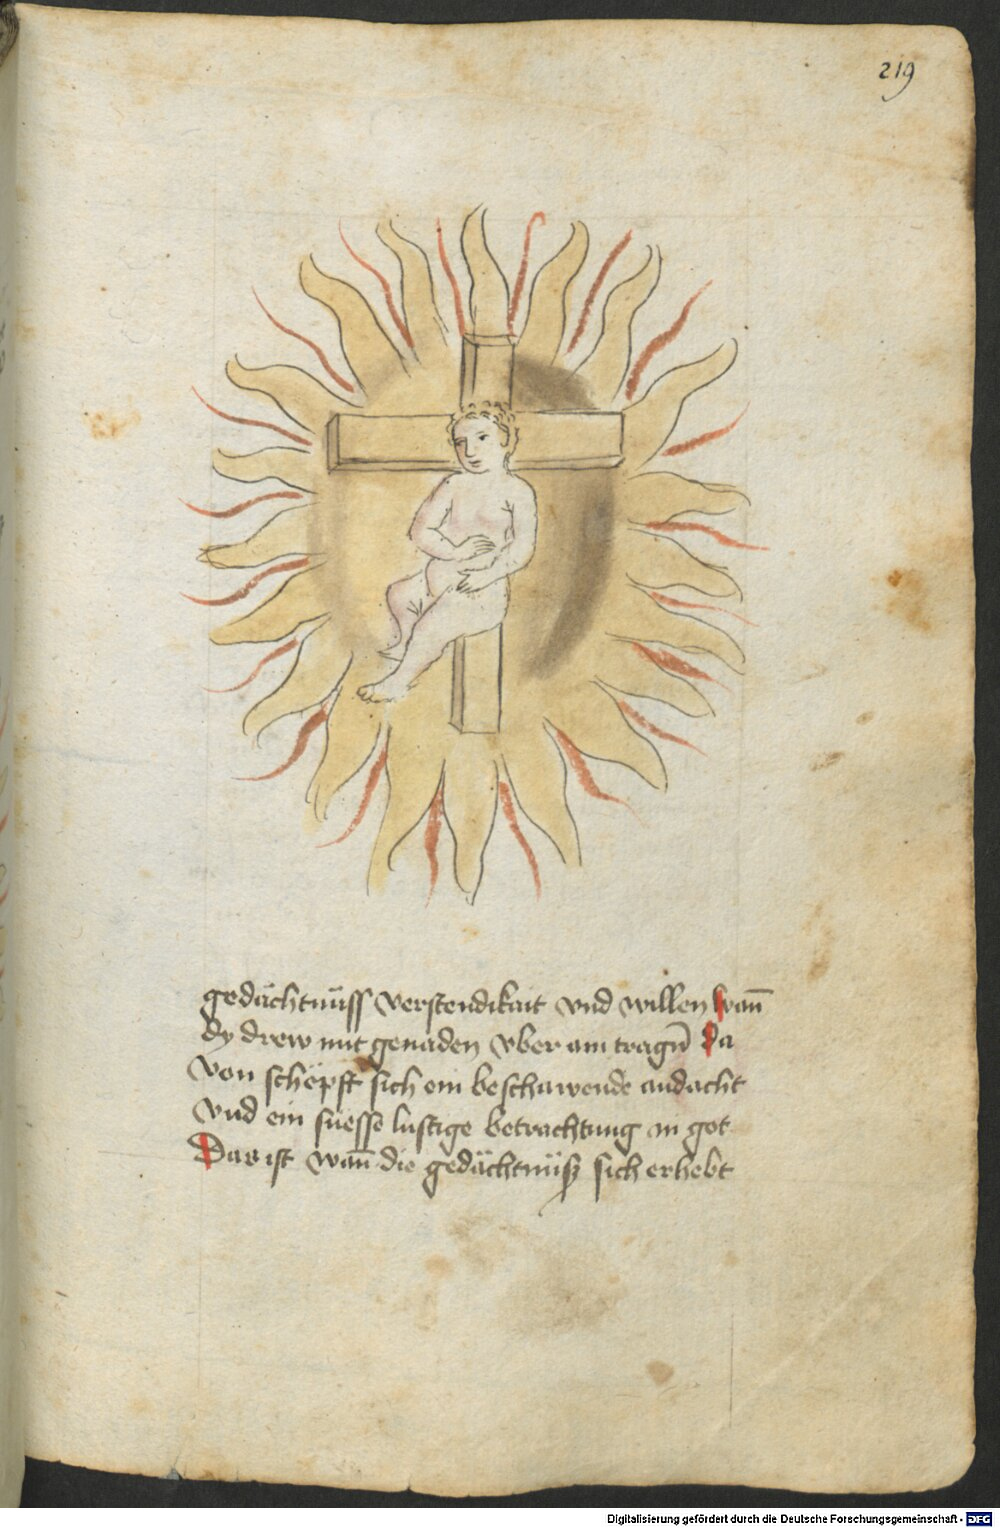 219
gedächtnüss verstendikait vnd willen wañ
dy drew mit genaden vber ain tragñ Da
von schepft sich ein beschawende andacht
vnd ein suesse lustige betrachtung in got
Das ist wañ die gedächtnüsz sich erhebt
Digitalisierung gefördert durch die Deutsche Forschungsgemeinschaft - DFG